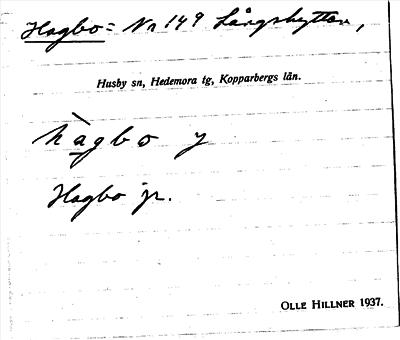 Hagbo = Nr 149 Långshyttan,
Husby sn, Hedemora tg, Kopparbergs län.
hàgbo y
Hagbo jr.
OLLE HILLNER 1937.